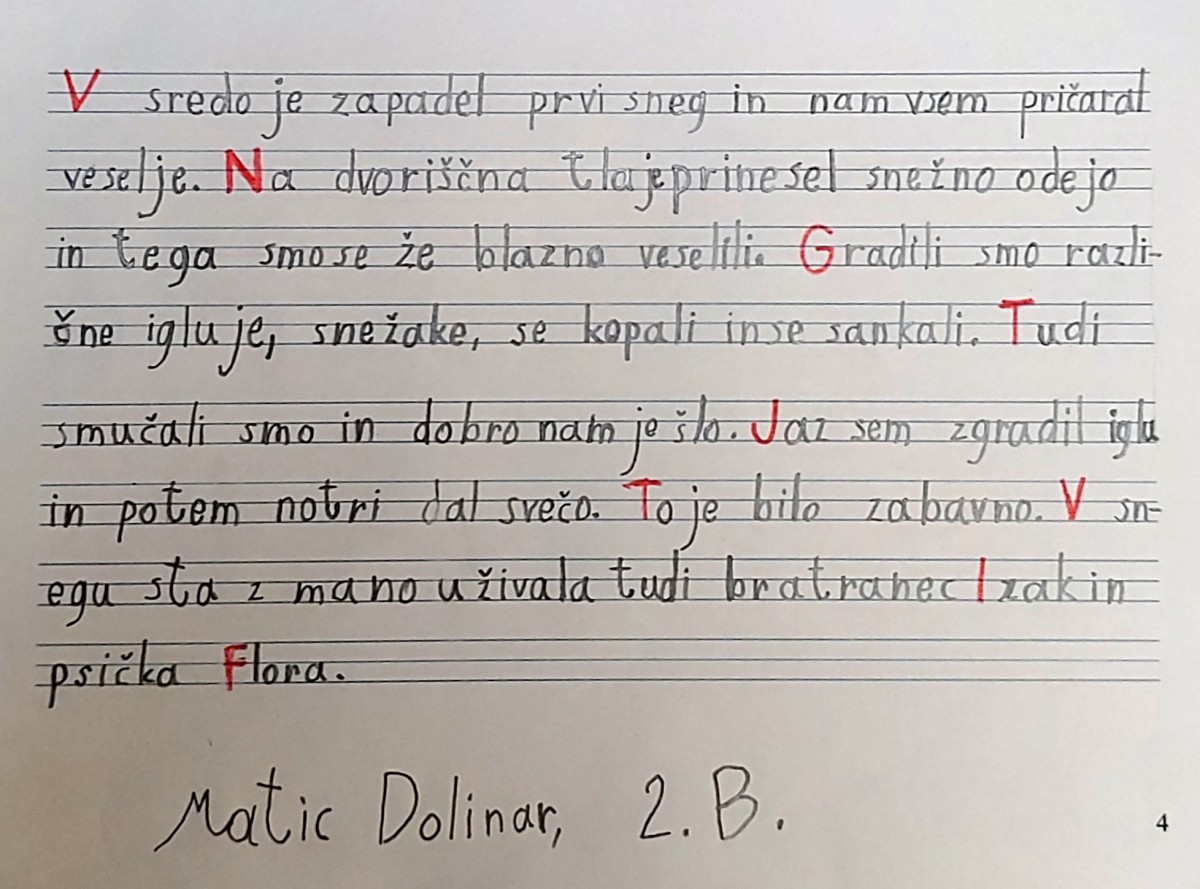 V sredo je zapadel prvi sneg in nam vsem pričaral
veselje. Na dvoriščna tla je prinesel snežno odejo
in tega smo se že blazno veselili. Gradili smo razli-
čne igluje, snežake, se kopali in se sankali. Tudi
smučali smo in dobro nam je šlo. Jaz sem zgradil iglu
in potem notri dal svečo. To je bilo zabavno. V sn-
egu sta z mano uživala tudi bratranec Izak in
psička Flora.
Matic Dolinar, 2. B.
4